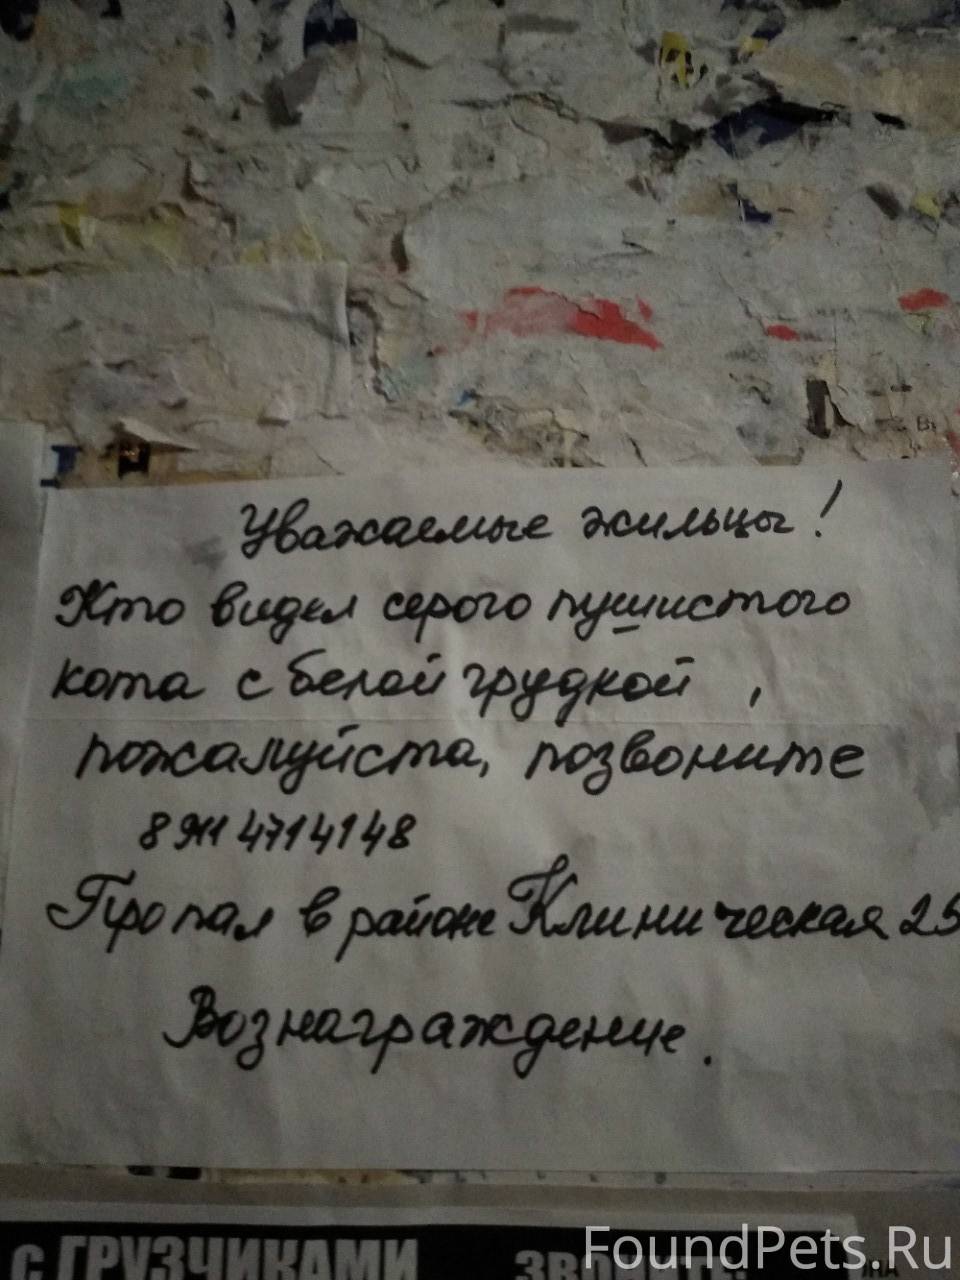 Уважаемые жильцы!
Кто видел серого пушистого
кота с белой грудкой,
пожалуйста, позвоните
89114714148
Пропал в районе Клиническая 25
Вознаграждение.
с ГРУЗЧИКАМИ
FoundPets.Ru